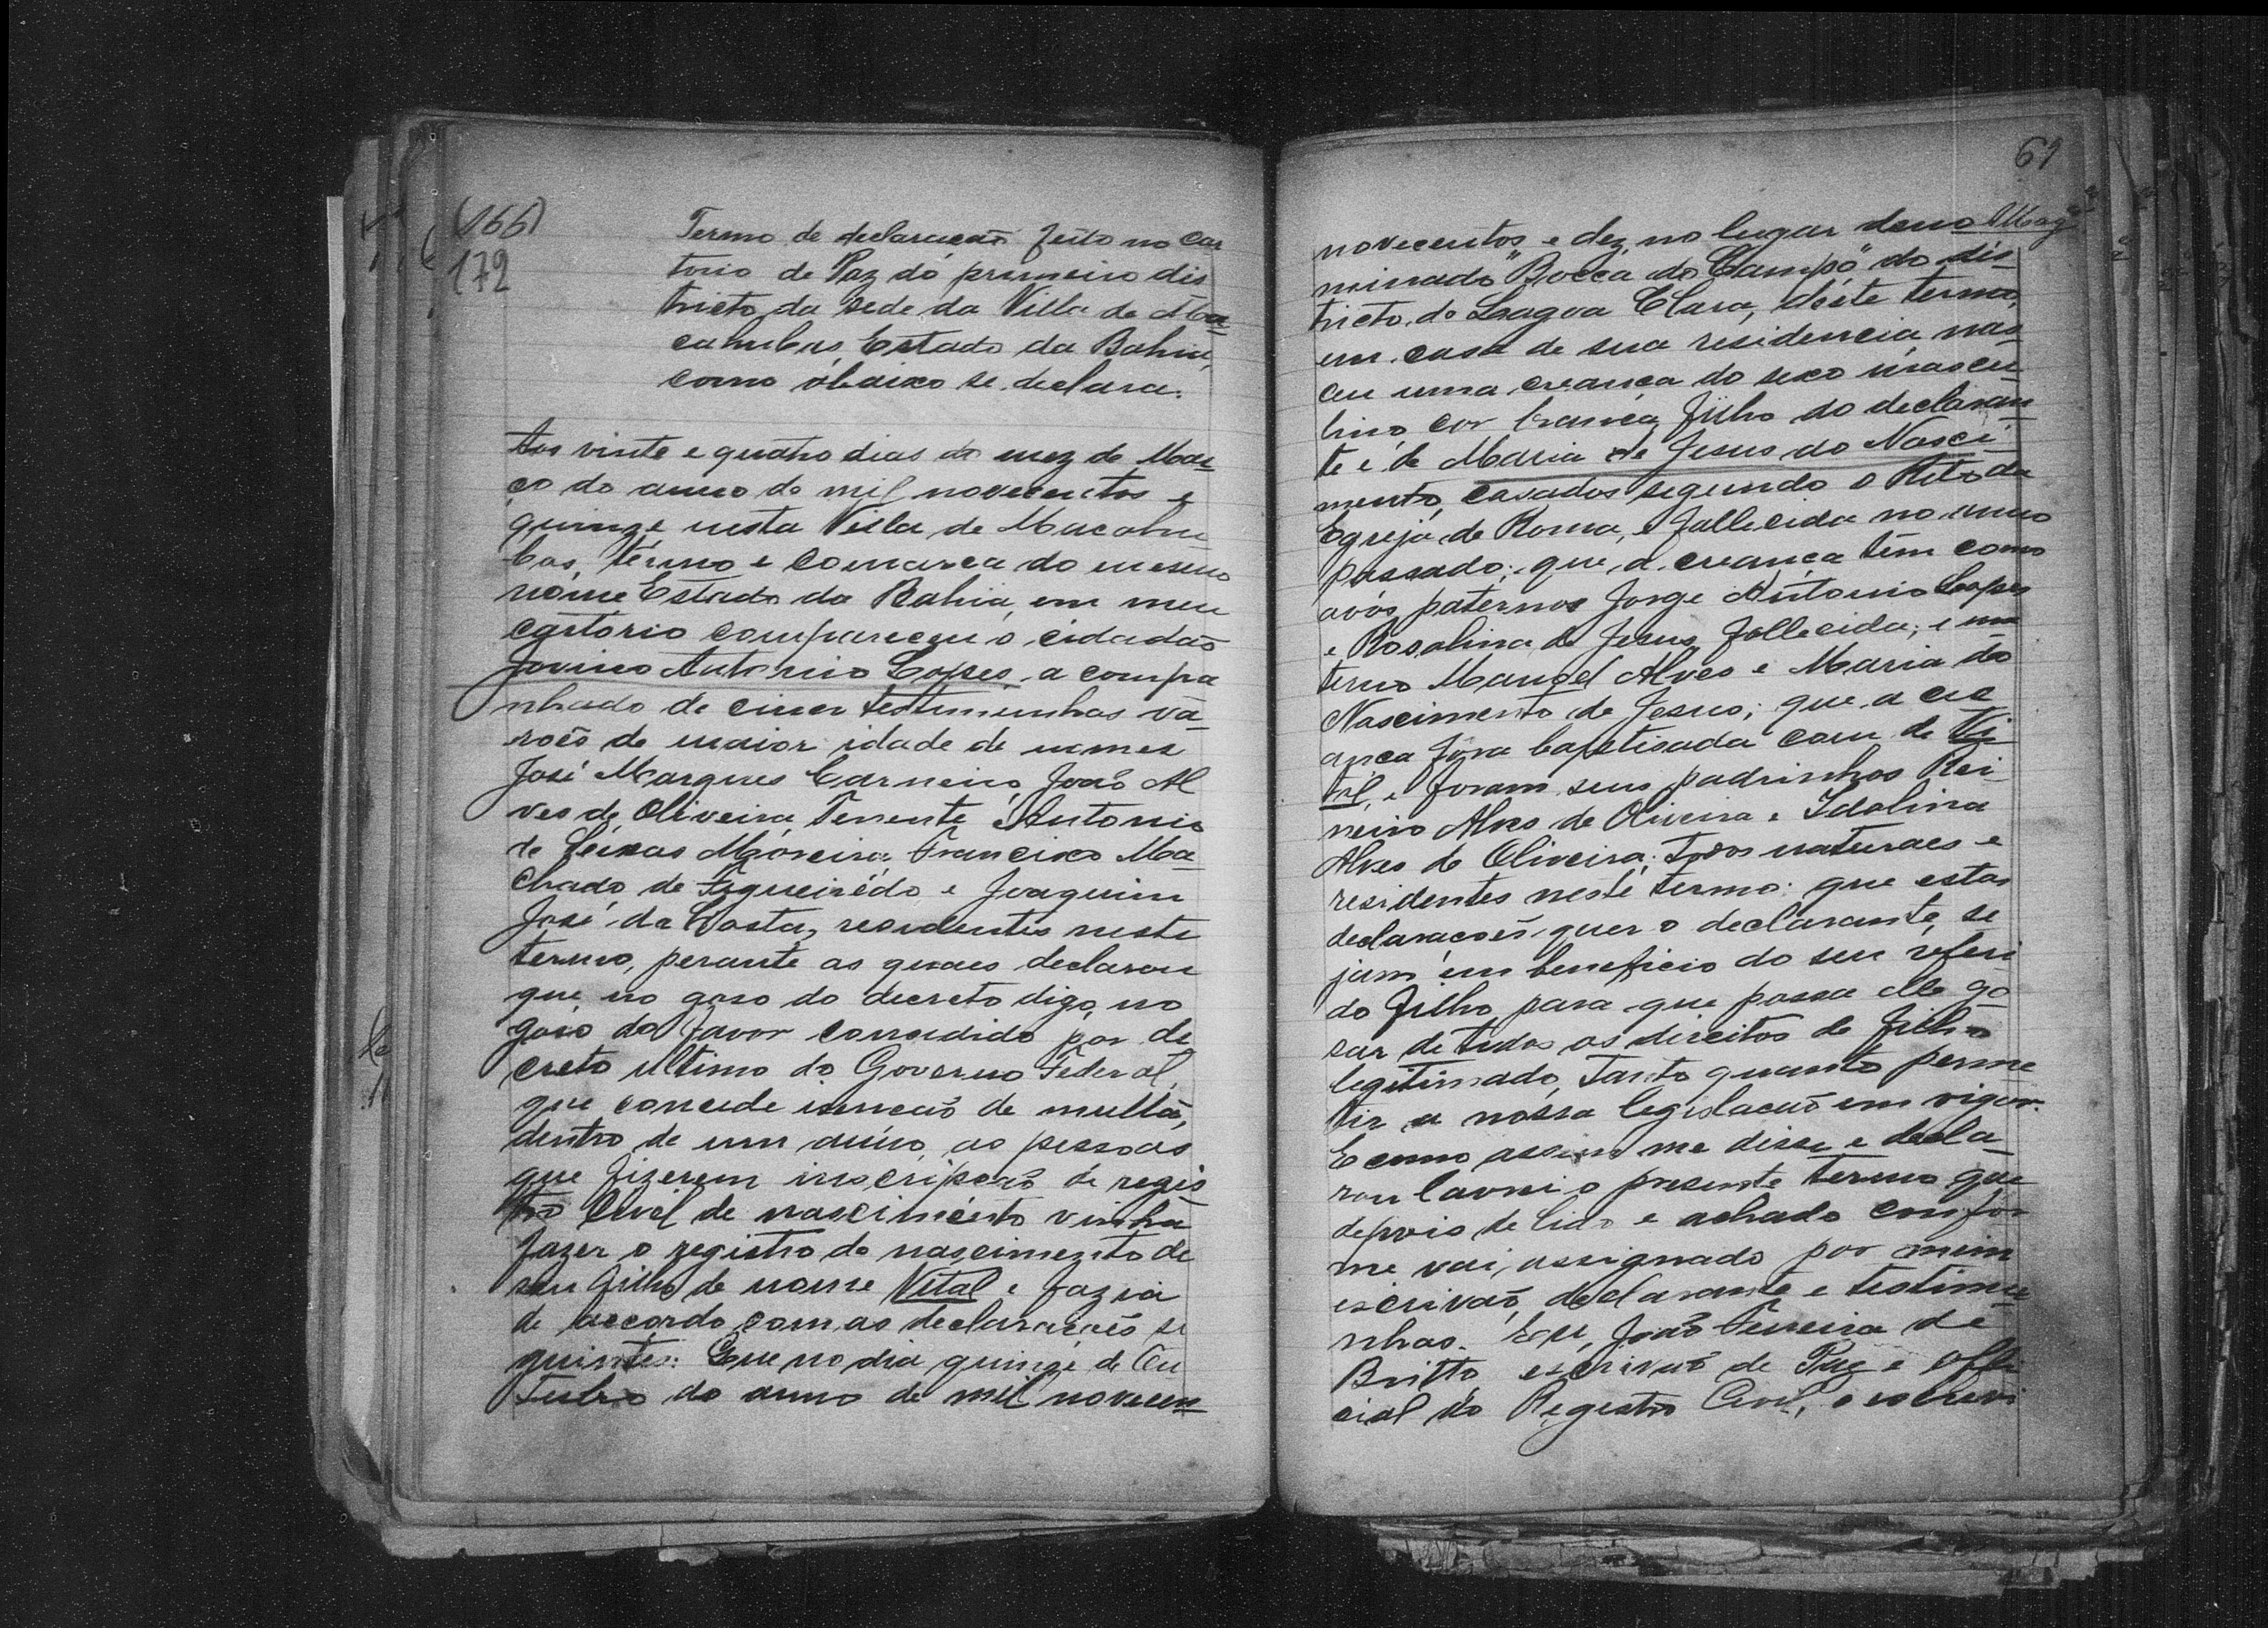 (166)
172
Termo de declaração feito no car
torio de Paz do primeiro dis
tricto da sede da Villa de Ma
cahubas Estado da Bahia,
como abaixo se declara.
Aos vinte e quatro dias do mez de Mar
ço do anno de mil novecentos e
quinze nesta Villa de Macahu
bas, termo e comarca do mesmo
nome Estado da Bahia, em meu
cartorio compareceu o cidadão
Jovino Antonio Lopes, a compa
nhado de cinco testimunhas va
rões de maior idade de nomes
José Marques Carneiro, João Al
ves de Oliveira, Tenente Antonio
de Seixas Moreira, Francisco Ma
chado de Figueirêdo e Joaquim
José da Costa, residentes neste
termo, perante as quaes declarou
que no goso do decreto digo, no
goso do favor concedido por de
creto ultimo do Governo Federal,
que concede isenção de multa,
dentro de um anno, as pessoas
que fizerem inscripção de regis
tro Civil de nascimento vinha
fazer o registro do nascimento de
seu filho de nome Vital e fazia
de accordo com as declarações se
guintes: Que no dia quinze de Ou
tubro do anno de mil novecen
61
novecentos e dez, no lugar deno
minado "Bocca do Campo" do dis
tricto de Lagoa Clara, deste termo,
em casa de sua residencia nas
ceu uma creança do sexo mascu
lino cor branca filho do declaran
te e de Maria de Jesus do Nasci
mento, casados segundo o Rito da
Egreja de Roma, e fallecida no anno
passado; que, a creança têm como
avós paternos Jorge Antonio Lopes
e Rosalina de Jesus, fallecida; e ma
terno Manoel Alves e Maria do
Nascimento de Jesus; que a cre
ança fora baptisada com de Vi
tal, e foram seus padrinhos Rei
neiro Alves de Oliveira e Idalina
Alves de Oliveira; todos naturaes e
residentes neste termo: que estas
declarações quer o declarante, se
jam em beneficio do seu referi
do filho para que possa elle go
sar de todos os direitos de filho
legitimado, tanto quanto perme
tir a nossa legislação em vigor.
E como assim me disse e decla
rou lavrei o presente termo que
depois de lido e achado confor
me vai, assignado por mim
escrivão, declarante e testimu
nhas. Eu, João Ferreira de
Britto, escrivão de Paz e offi
cial do Registro Civil, o escrevi